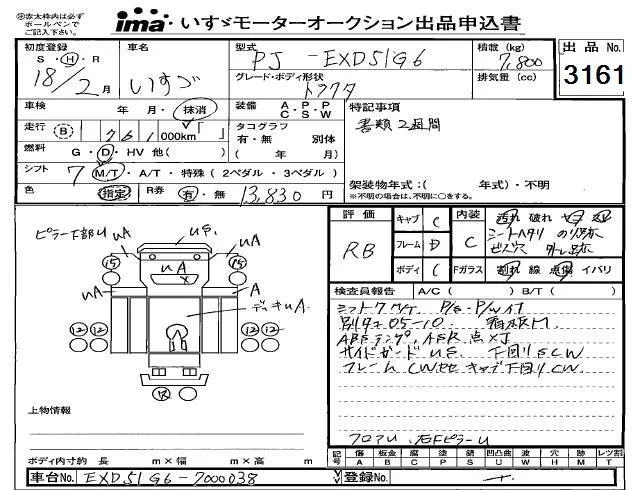 ※赤太枠内は必ず
ボールペンで
ご記入下さい。
ima いすゞモーターオークション出品申込書
初度登録
S・H・R
18/2月
車名
いすゞ
型式
PJ-EXD51G6
グレード・ボディ形状
トラクタ
積載(kg)
7,800
排気量(cc)
出品No.
3161
車検 年 月・抹消
走行 (B) 761,000km
燃料 G・D・HV 他( )
シフト 7 M/T・A/T・特殊(2ペダル・3ペダル)
色 指定 R券 有・無 13,830円
装備 A・P・P
C・S・W
タコグラフ
有・無 別体
( 年 月)
特記事項
書類2週間
架装物年式:( 年式)・不明
※不明の場合は、不明に○をする。
ピラー下部U UA
US
UA
A
UA
デッキUA
15
15
12 12
12 12
R
上物情報
ボディ内寸約 長 m×幅 m×高 m
車台No. EXD51G6-7000038
評価
RB
キャブ C
フレーム D
ボディ C
内装
C
汚れ 破れ
シートヘタリ のり跡
ビス穴 外し跡
Fガラス 割れ 線 点傷 イバリ
検査員報告 A/C( ) B/T( )
シフト7M/T P/S・P/W付
別タナ05-10
ABSランプ、ASR点×J
サイドガードUS 下回りSCW
フレームCW キャブ下回りCW
フロアU、右FピラーU
記号 傷 板金 腐 塗 錆 凹凸曲 波 穴 跡 飛 レツ割
A B C P S U W H M T
登録No.